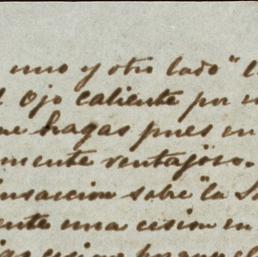 uno y otro lado "l
l Ojo caliente por
ne hagas pues en
mente ventajoso.
nsaccion sobre "la S
ente una cesion en